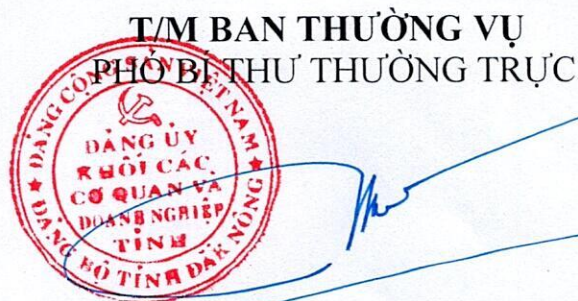 T/M BAN THƯỜNG VỤ
PHÓ BÍ THƯ THƯỜNG TRỰC
ĐẢNG CỘNG SẢN VIỆT NAM
ĐẢNG ỦY
KHỐI CÁC
CƠ QUAN VÀ
DOANH NGHIỆP
TỈNH
ĐẢNG BỘ TỈNH ĐĂK NÔNG